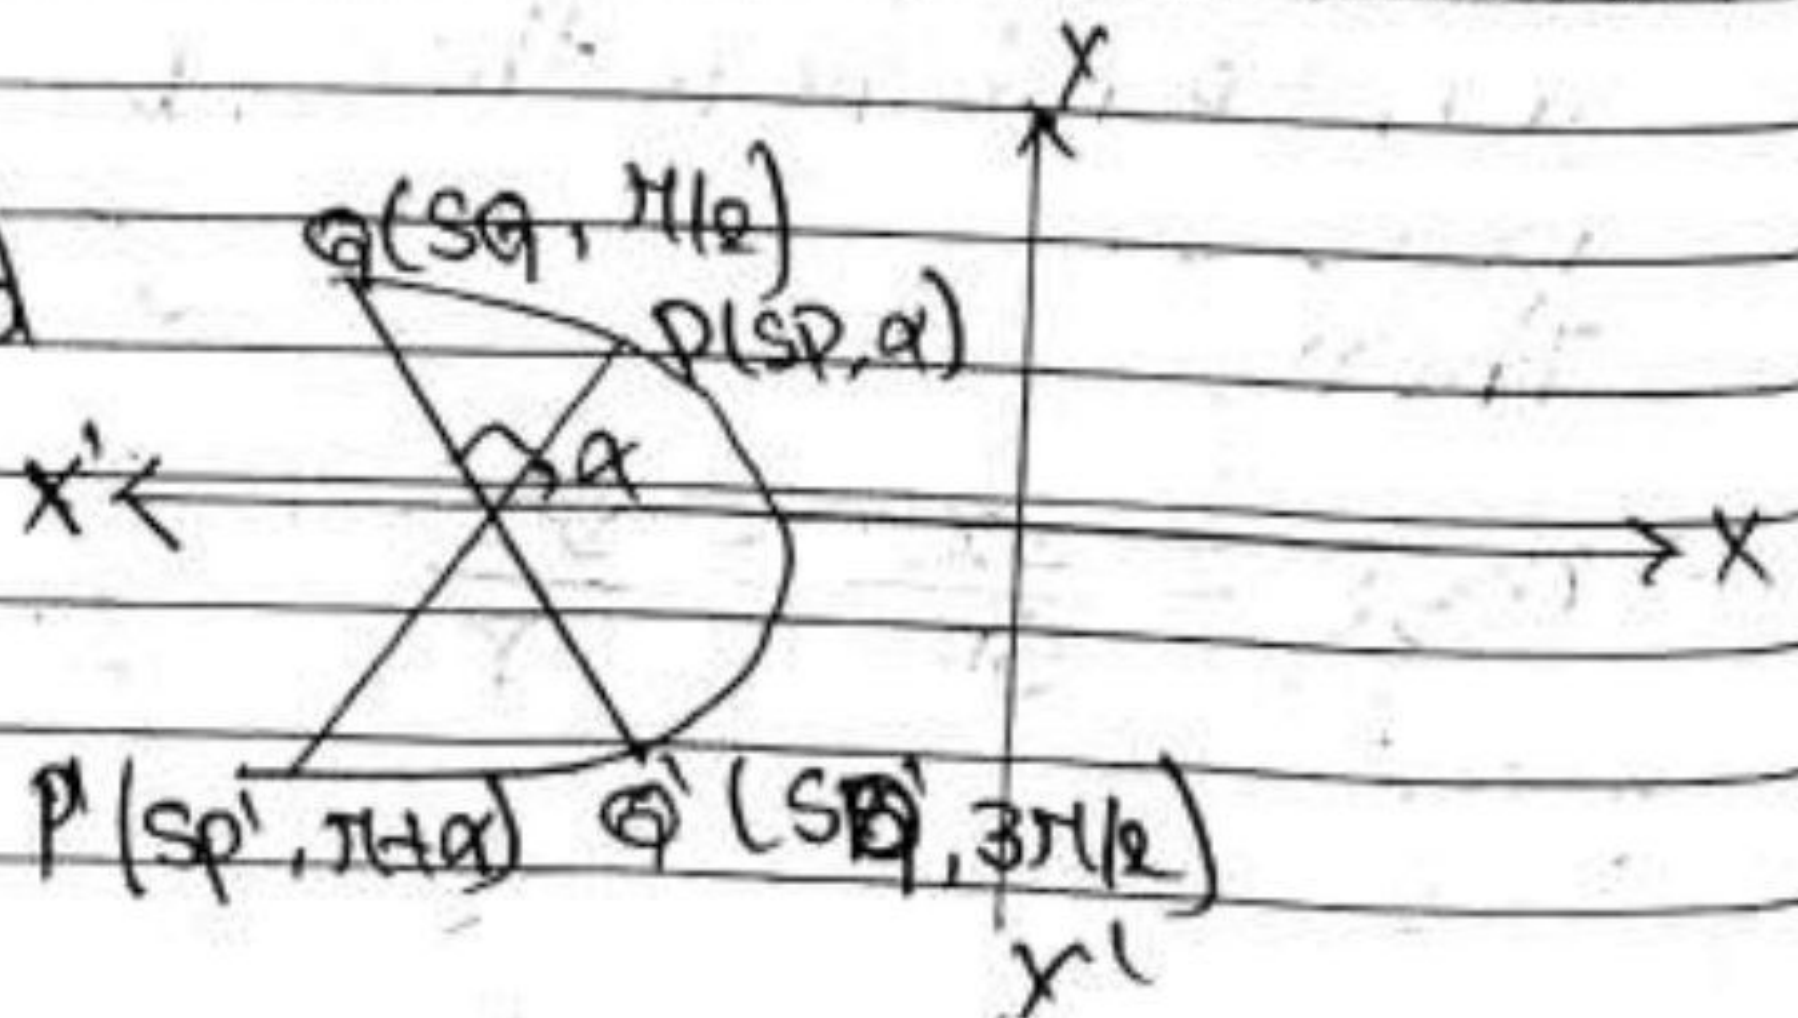 Y
Q(SQ, π/2)
P(SP, α)
α
X'
X
P'(SP', π+α) Q'(SQ', 3π/2)
Y'